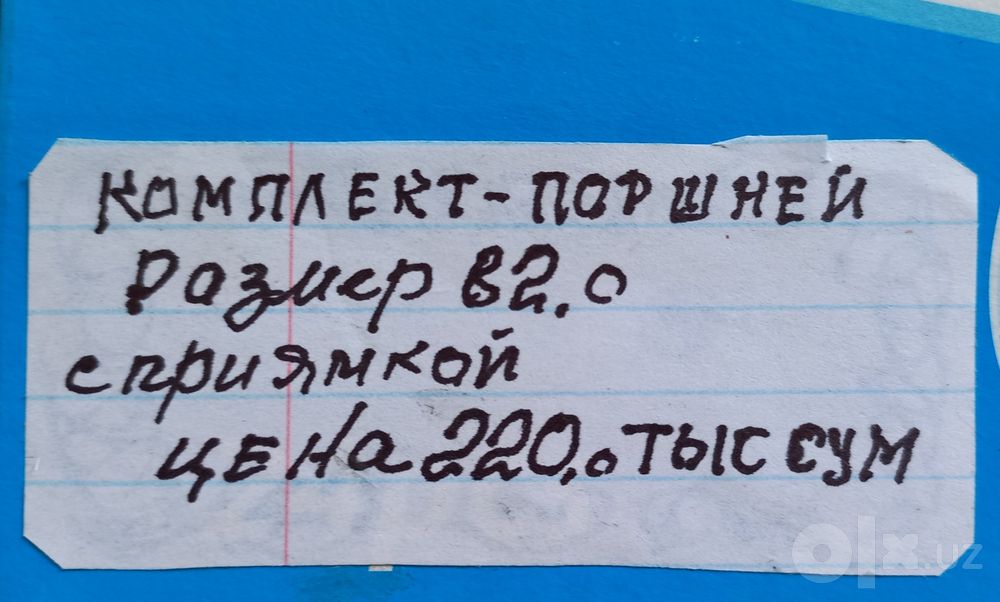 КОМПЛЕКТ-ПОРШНЕЙ
Размер 82.0
с приямкой
ЦЕНА 220.0 ТЫС СУМ
olx.uz